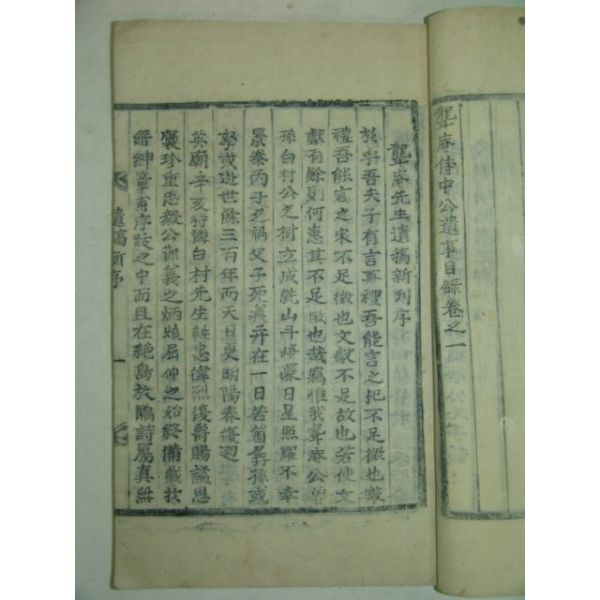 聾庵侍中公遺事目錄卷之一
聾庵先生遺稿新刊序
於乎吾夫子有言曰夏禮吾能言之杞不足徵也殷
禮吾能言之宋不足徵也文獻不足故也若使文
獻有餘則何患其不足徵也哉竊惟我聾庵公曾
孫白村公之樹立成就山斗嵬蒙日星照耀不幸
景泰丙子之禍父子死若箇孱孫或
孥或逃世餘三百年而天日更明陽春復廻
英廟辛亥特憫白村先生純忠偉烈復爵賜諡恩
褒珍重忠毅公節義之炳燒屈伸之始終備載於
搢紳章甫序跋之中而且在絶島放鷳詩屬真無
遺稿新序
一